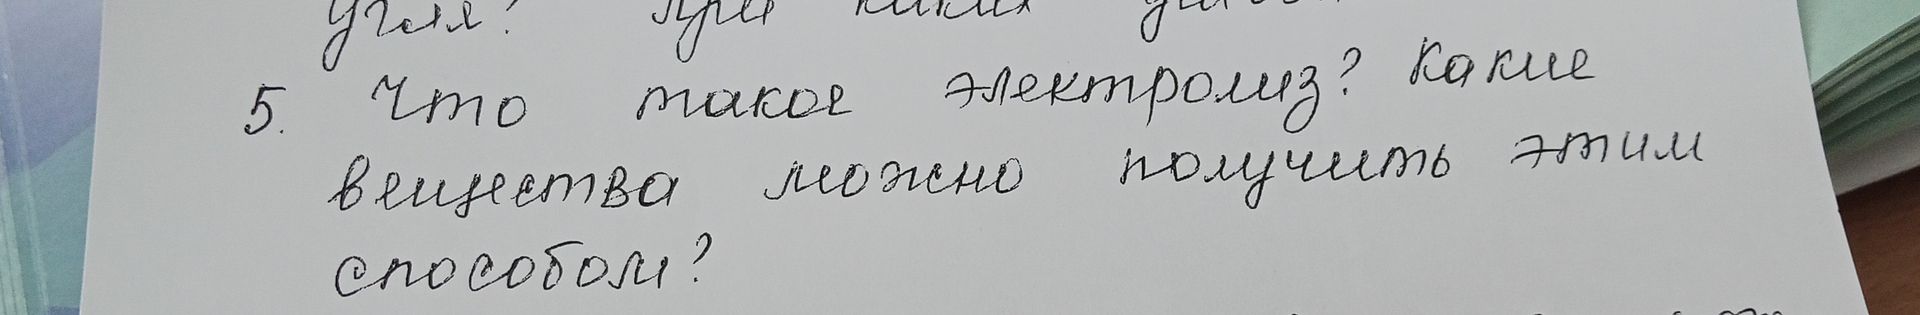 угля? При каких
5. Что такое электролиз? Какие
вещества можно получить этим
способом?